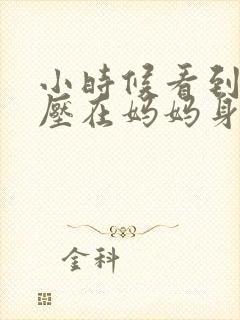 小時候看到
壓在妈妈身
金科